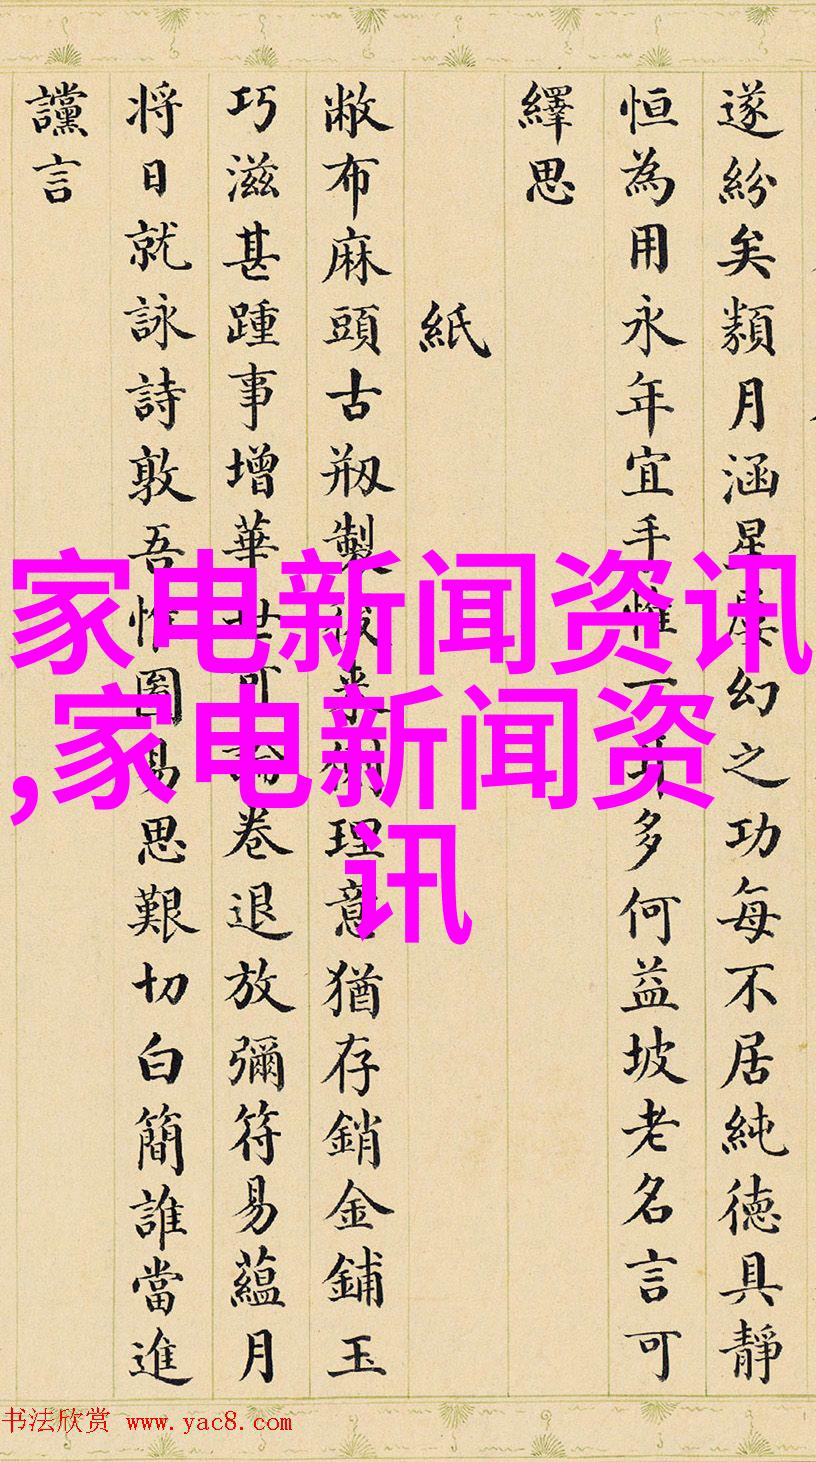 遂紛矣類月涵星辰幻之功每不居純德具靜
恒為用永年宜手惟一卉多何益坡老名言可
繹思
紙
敝布麻頭古剏製後來例理意猶存銷金鋪玉
巧滋甚踵事增華世可論卷退放彌符易蘊月
将日就詠詩敦吾惟圖易思艱切白簡誰當進
讜言
家电新闻资讯
,家电新闻资
讯
书法欣赏 www.yac8.com